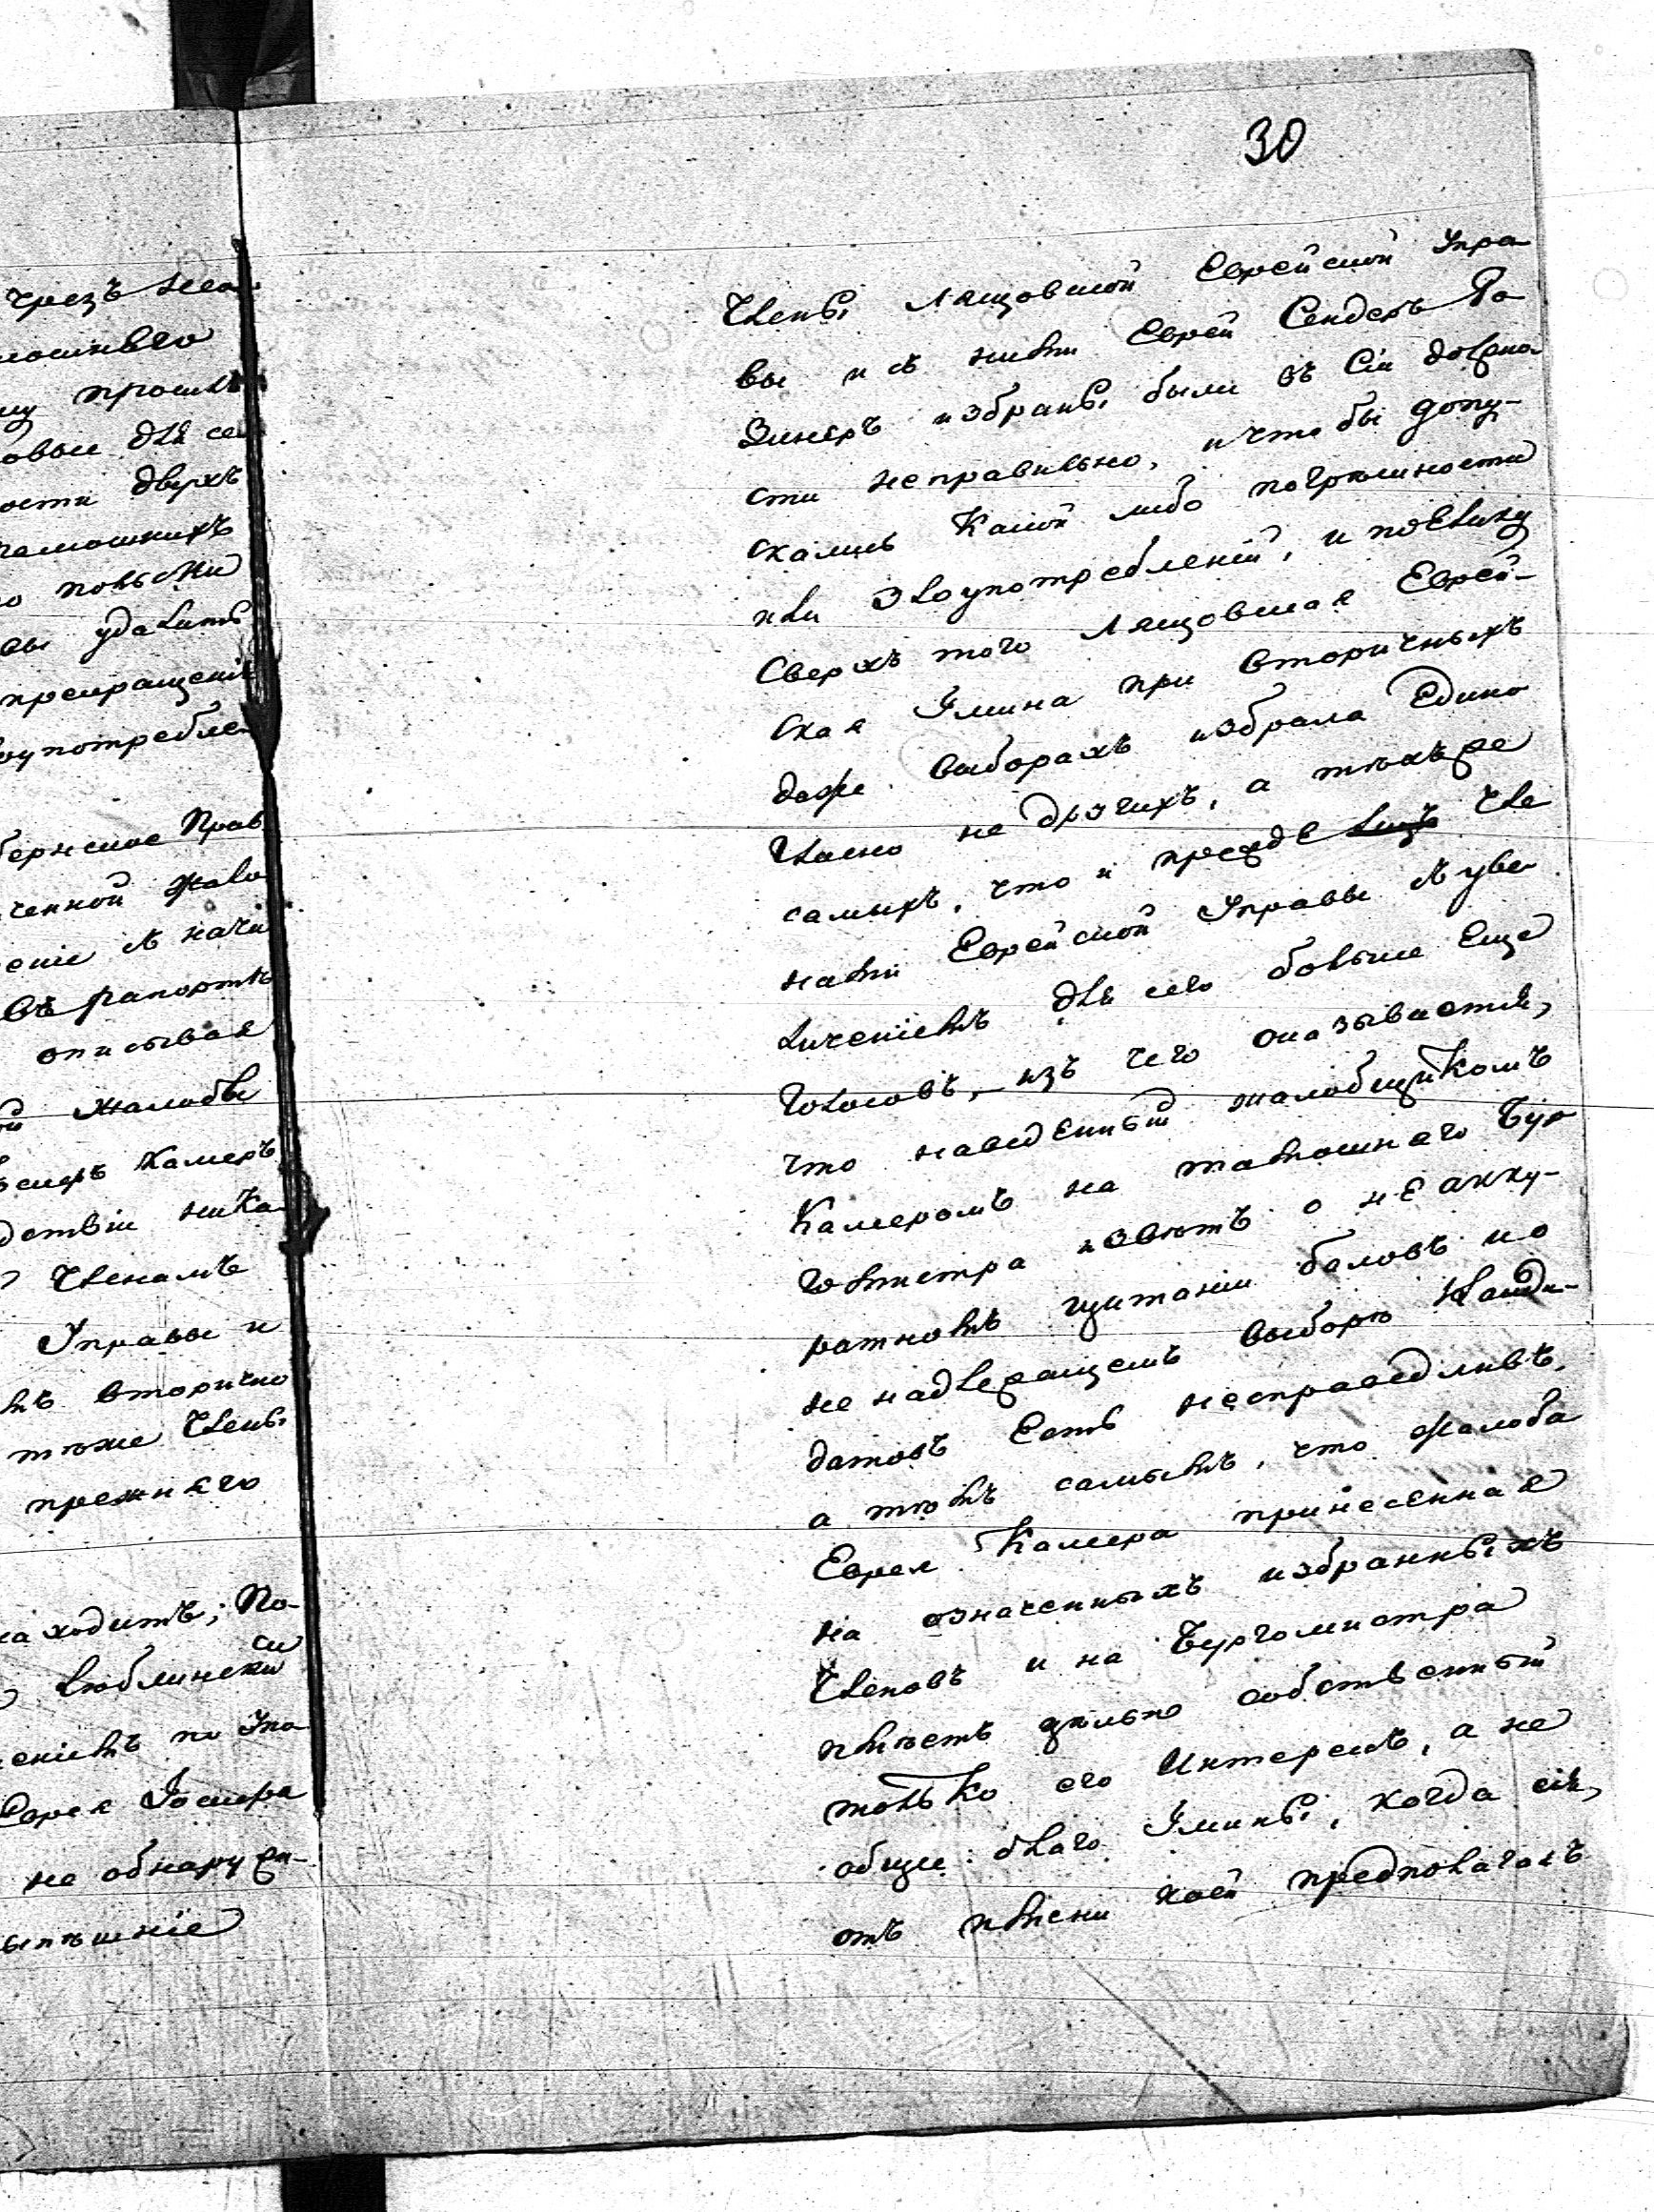 30
чрезъ
прошл
для се
ости двухъ
удалить
прекращенія
оупотребле
Прав
ченной жало
еніе
въ рапортѣ
описывая
жалобы
Камеръ
дствіи ника
Членамъ
Управы и
вторично
тѣже Члены
прежняго
находитъ; По-
Люблинскій
еніемъ по Ука
Еврея
не обнаруж-
Члены Лащовской Еврейской Упра
вы и съ ними Еврей Сендеръ Ро
зинеръ избраны были въ сіи должно
сти неправильно, и чтобы допу-
скались какой либо погрѣшности
или злоупотребленій, и поелику
Сверхъ того Лащовская Еврей-
ская Гмина при вторичныхъ
даже выборахъ избрала Едино
гласно не другихъ, а тѣхъже
самыхъ, что и прежде Чле
нами Еврейской Управы съ уве
личеніемъ для сего больше Еще
Голосовъ, изъ чего оказывается,
что наведенный жалобщикомъ
Камеромъ на тамошняго Бур
гомистра извѣтъ о не акку-
ратномъ щитаніи баловъ и о
не надлежащемъ выборѣ Канди-
датовъ Есть несправедливъ,
а тѣмъ самымъ, что жалоба
Еврея Камера принесенная
на означенныхъ избранныхъ
Членовъ и на Бургомистра
имѣетъ цѣлью собственный
только его Интересъ, а не
общее благо Гмины, когда сія,
отъ имени коей предполагалъ